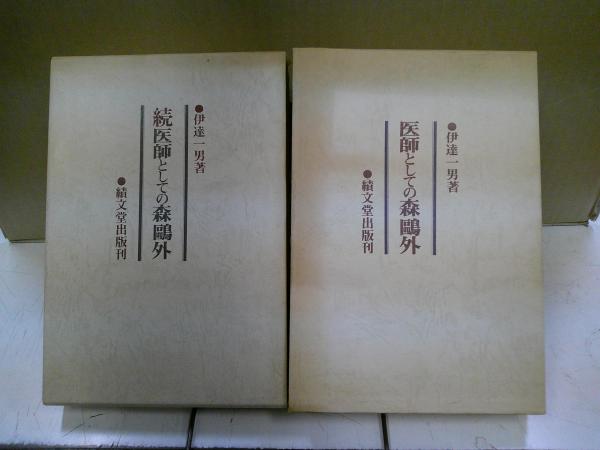 ●伊達一男著
続医師としての森鷗外
●績文堂出版刊
●伊達一男著
医師としての森鷗外
●績文堂出版刊